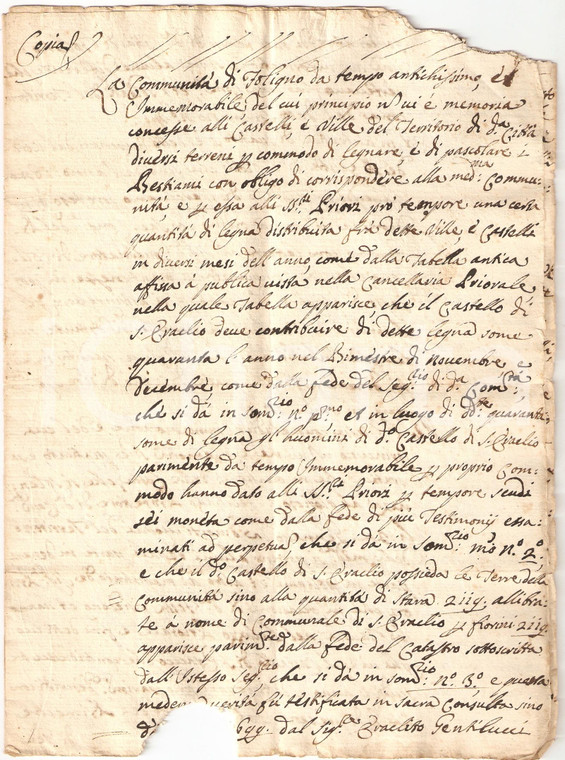 Copia
La Communità di Foligno da tempo antichissimo, et
Immemorabile del cui principio nō vi è memoria
concesse alli Castelli, e Ville del Territorio di d.a Città
diversi terreni p commodo di legnare, e di pascolare i
Bestiami con obligo di corrispondere alla med.ma Commu-
nità, e p essa alli SS.ri Priori pro tempore una certa
quantità di legna distribuita frà dette Ville, e Castelli
in diversi mesi dell'anno, come dalla Tabella antica
afissa à publica vista nella Cancellaria Priorale
nella quale Tabella apparisce che il Castello di
S. Eraclio deve contribuire di dette legna some
quaranta l'anno nel Bimestre di Novembre e
Decembre come dalla fede del Seg.rio di d.a Com.tà
che si dà in som.rio n.o p.mo et in luogo di d.te quaranta
some di legna gl'huomini di d.o Castello di S. Eraclio
parimente da tempo Immemorabile p proprio Com-
modo hanno dato alli SS.ri Priori p tempore scudi
sei moneta come dalla fede di più Testimonij essa-
minati ad perpetuā che si dà in Som.rio n.o 2.o
e che il d.o Castello di S. Eraclio possieda le Terre della
Communità sino alla quantità di Stara 2119. allibra-
te à nome di Communale di S. Eraclio p fiorini 2119
apparisce parim.te dalla fede del Catastro sottoscritta
dall'Istesso Seg.rio che si dà in som.rio n.o 3.o e questa
medem verità fù testificata in Sacra Consulta sino
699. dal Sig.re Eraclito Gentilucci